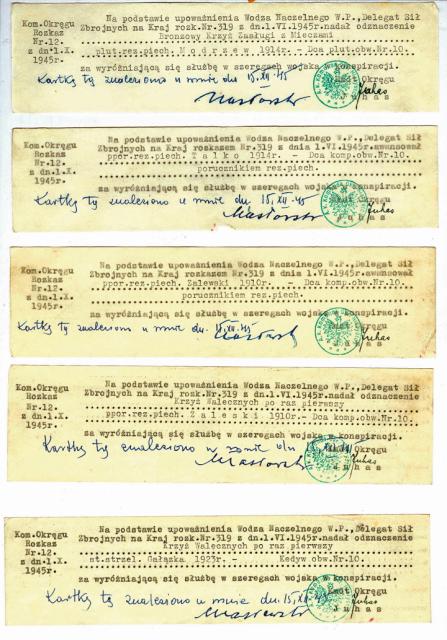 Kom.Okręgu
Rozkaz
Nr.12.
z dn.1.X.
1945r.
Na podstawie upoważnienia Wodza Naczelnego W.P.,Delegat Sił
Zbrojnych na Kraj rozk.Nr.319 z dn.1.VI.1945r.nadał odznaczenie
Bronzowy Krzyż Zasługi z Mieczami
plut.rez.piech. M o d r z e w 1914r.- Dca plut.obw.Nr.10.
za wyróżniającą się służbę w szeregach wojska w konspiracji.
Kartkę tę znaleziono u mnie dn. 15.XII.45
Kmdt Okręgu
J u h a s
Juhas
Kom.Okręgu
Rozkaz
Nr.12.
z dn.1.X.
1945r.
Na podstawie upoważnienia Wodza Naczelnego W.P.,Delegat Sił
Zbrojnych na Kraj rozkazem Nr.319 z dnia 1.VI.1945r.awansował
ppor.rez.piech. T a l k o 1914r. - Dca komp.obw.Nr.10.
porucznikiem rez.piech.
za wyróżniającą się służbę w szeregach wojska w konspiracji.
Kartkę tę znaleziono u mnie dn. 15.XII.45
Okręgu
J u h a s
Juhas
Kom.Okręgu
Rozkaz
Nr.12.
z dn.1.X.
1945r.
Na podstawie upoważnienia Wodza Naczelnego W.P.,Delegat Sił
Zbrojnych na Kraj rozkazem Nr.319 z dnia 1.VI.1945r.awansował
ppor.rez.piech. Zalewski 1910r. - Dca komp.obw.Nr.10.
porucznikiem rez.piech.
za wyróżniającą się służbę w szeregach wojska w konspiracji.
Kartkę tę znaleziono u mnie dn. 15.XII.45
Okręgu
J u h a s
Juhas
Kom.Okręgu
Rozkaz
Nr.12.
z dn.1.X.
1945r.
Na podstawie upoważnienia Wodza Naczelnego W.P.,Delegat Sił
Zbrojnych na Kraj rozk.Nr.319 z dn.1.VI.1945r.nadał odznaczenie
Krzyż Walecznych po raz pierwszy
ppor.rez.piech. Z a l e s k i 1910r.- Dca komp.obw.Nr.10.
za wyróżniającą się służbę w szeregach wojska w konspiracji.
Kartkę tę znaleziono u mnie dn.
Okręgu
J u h a s
Juhas
Kom.Okręgu
Rozkaz
Nr.12.
z dn.1.X.
1945r.
Na podstawie upoważnienia Wodza Naczelnego W.P.,Delegat Sił
Zbrojnych na Kraj rozk.Nr.319 z dn.1.VI.1945r.nadał odznaczenie
Krzyż Walecznych po raz pierwszy
st.strzel. Gałązka 1923r. - Kedyw obw.Nr.10.
za wyróżniającą się służbę w szeregach wojska w konspiracji.
Kartkę tę znaleziono u mnie dn. 15.XII.45
Kmdt Okręgu
J u h a s
Juhas